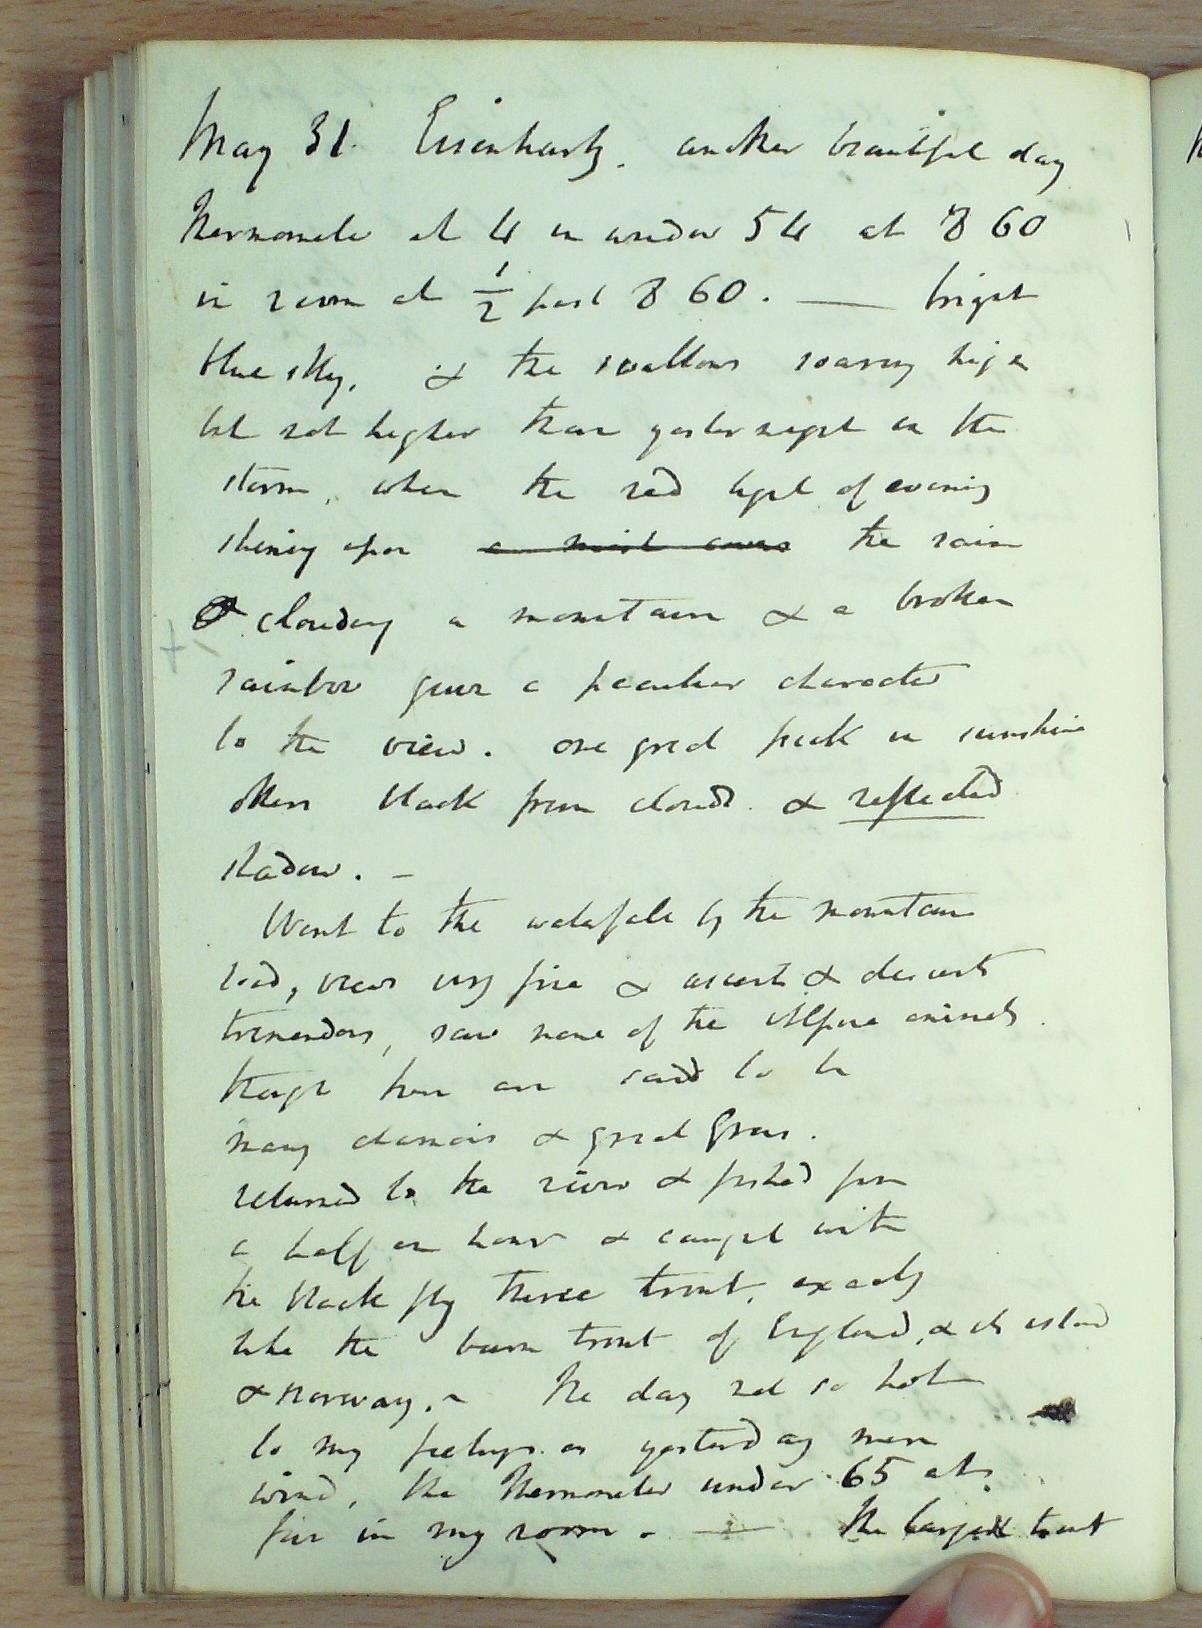 May 31. Eisenhartz. another beautiful day
thermometer at 4 in window 54 at 8 60
in room at ½ past 8 60. — bright
blue sky. & the swallows soaring high
but not higher than yesternight in the
storm, when the red light of evening
shining upon a mist cover the rain
& clouding a mountain & a broken
rainbow gave a peculiar character
to the view. one great peak in sunshine
others black from clouds & reflected
shadow. –
Went to the waterfall by the mountain
road, views very fine & ascents & descents
tremendous, saw none of the Alpine animals
though here are said to be
many chamois & great Grous.
returned to the river & fished for
a half an hour & caught with
the black fly three trout, exactly
like the burn trout of England, & Scotland
& Norway. ~ The day not so hot
to my feelings as yesterday more
wind, the thermometer under 65 at
five in my room. — The largest trout